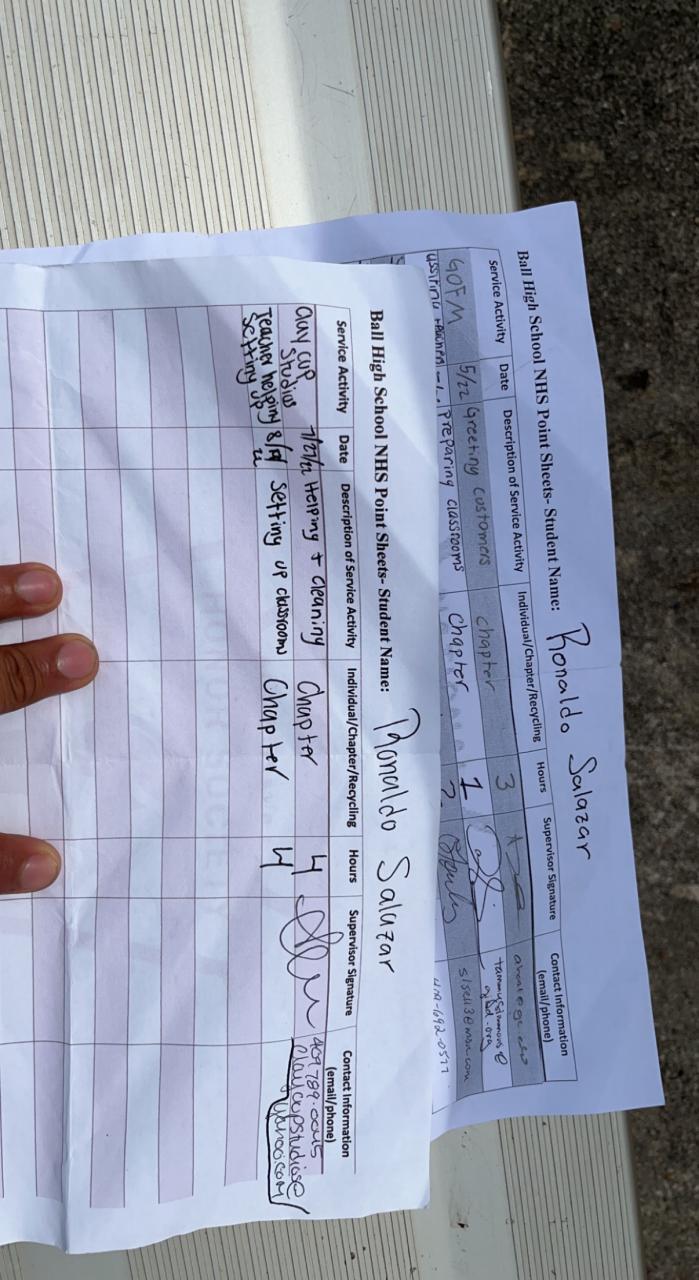 Ball High School NHS Point Sheets- Student Name: Ronaldo Salazar
Service Activity Date Description of Service Activity Individual/Chapter/Recycling Hours Supervisor Signature Contact Information (email/phone)
3
GOFM 5/22 Greeting customers chapter 1
Preparing classrooms chapter
slsell3@msn.com
692-0577
Ball High School NHS Point Sheets- Student Name: Ronaldo Salazar
Service Activity Date Description of Service Activity Individual/Chapter/Recycling Hours Supervisor Signature Contact Information (email/phone)
clay cup studios 7/21/22 Helping & cleaning Chapter 4 409.789.0045
claycupstudios@yahoo.com
Teacher helping setting up 8/ 22 Setting up classroom Chapter 4